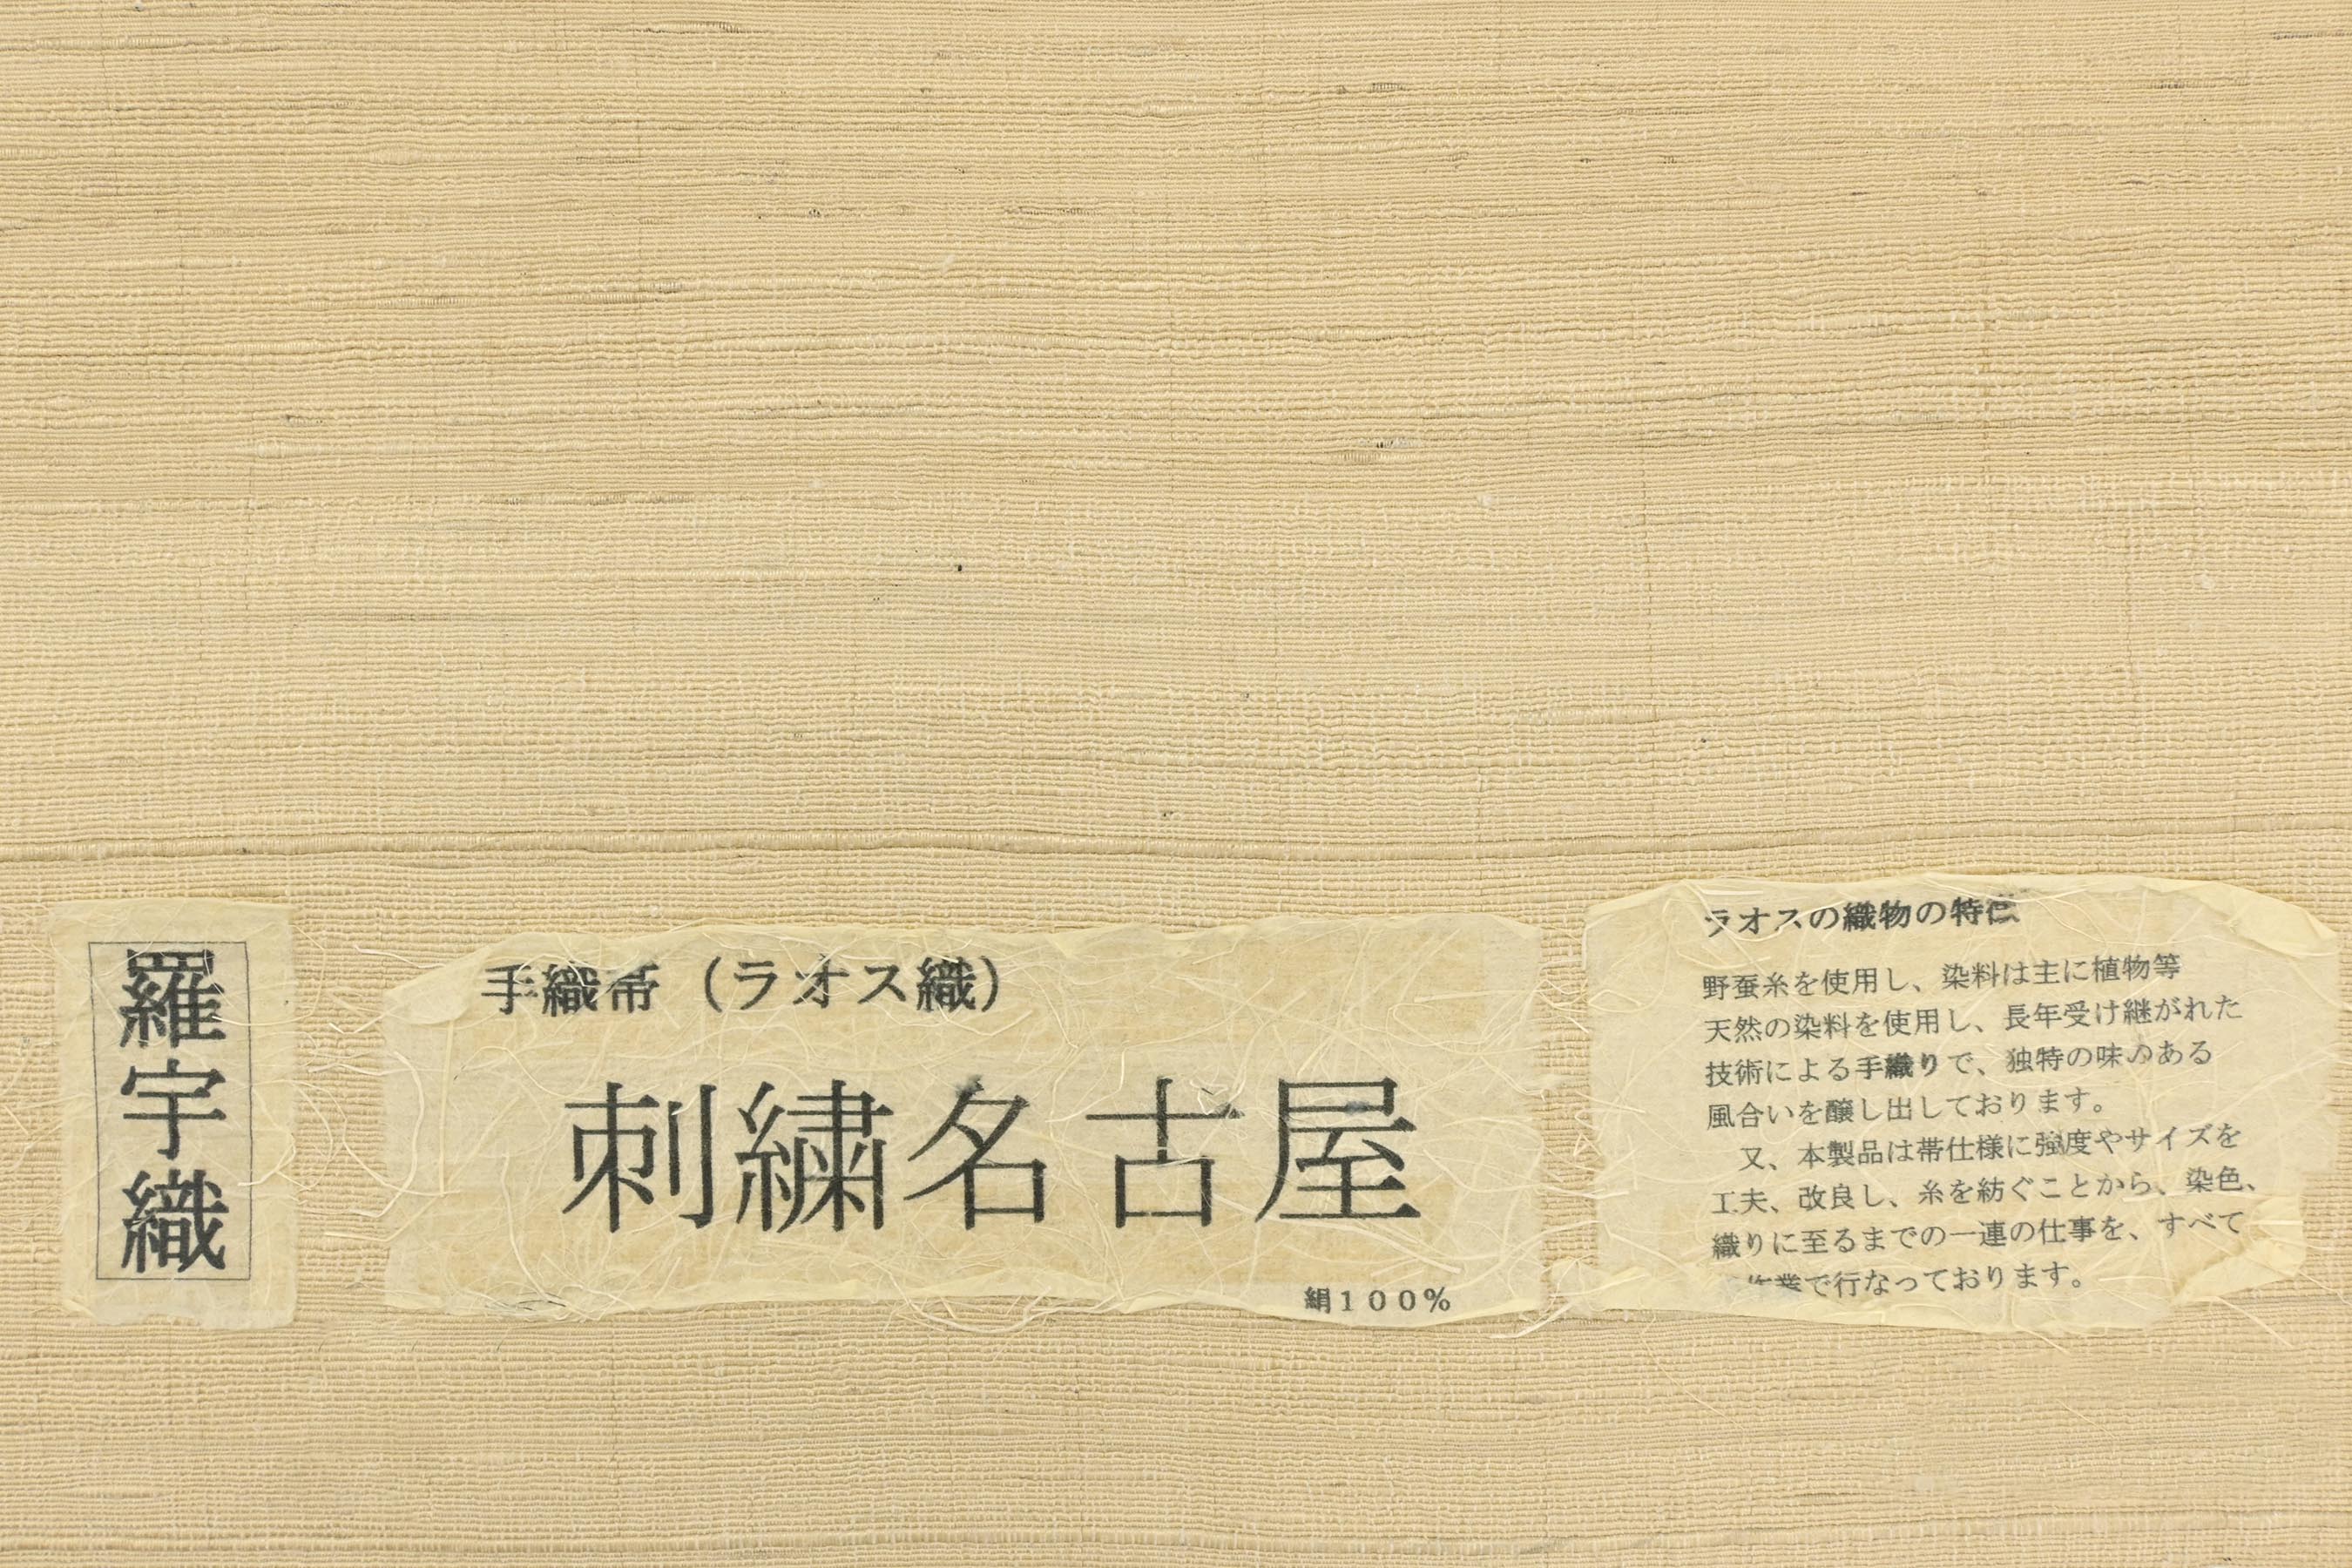 羅宇織
手織帯（ラオス織）
刺繍名古屋
絹１００％
ラオスの織物の特性
野蚕糸を使用し、染料は主に植物等
天然の染料を使用し、長年受け継がれた
技術による手織りで、独特の味のある
風合いを醸し出しております。
又、本製品は帯仕様に強度やサイズを
工夫、改良し、糸を紡ぐことから、染色、
織りに至るまでの一連の仕事を、すべて
作業で行なっております。